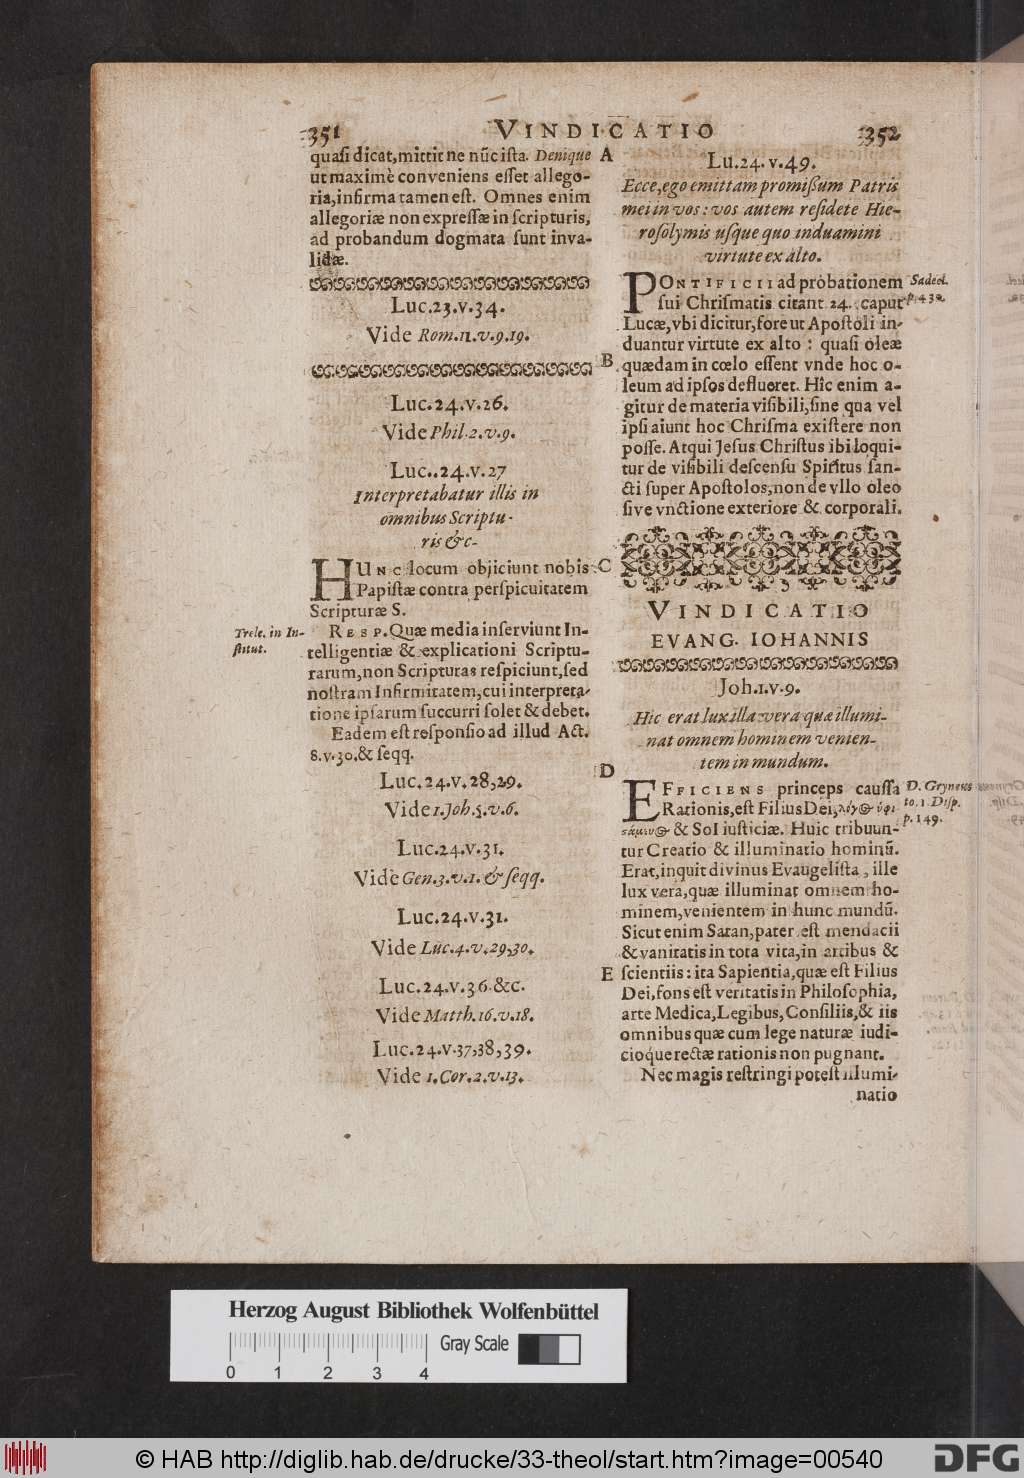 351
VINDICATIO
352
quaſi dicat, mittit ne nūc iſta. Denique
ut maximè conveniens eſſet allego-
ria, infirma tamen eſt. Omnes enim
allegoriæ non expreſſæ in ſcripturis,
ad probandum dogmata ſunt inva-
lidæ.
Luc.23.v.34.
Vide Rom.11.v.9.19.
Luc.24.v.26.
Vide Phil.2.v.9.
Luc..24.v.27
Interpretabatur illis in
omnibus Scriptu-
ris &c-
HUNC locum objiciunt nobis
Papiſtæ contra perſpicuitatem
Scripturæ S.
Trelc. in In-
ſtitut.
RESP. Quæ media inſerviunt In-
telligentiæ & explicationi Scriptu-
rarum, non Scripturas reſpiciunt, ſed
noſtram Infirmitatem, cui interpreta-
tione ipſarum ſuccurri ſolet & debet.
Eadem eſt reſponſio ad illud Act.
8.v.30.& ſeqq.
Luc.24.v.28,29.
Vide 1.Joh.5.v.6.
Luc.24.v.31.
Vide Gen.3.v.1. & ſeqq.
Luc.24.v.31.
Vide Luc.4.v.29,30.
Luc.24.v.36.&c.
Vide Matth.16.v.18.
Luc.24.v.37,38,39.
Vide 1.Cor.2.v.13.
A
B
C
D
E
Lu.24.v.49.
Ecce, ego emittam promiſſum Patris
mei in vos: vos autem reſidete Hie-
roſolymis uſque quo induamini
virtute ex alto.
PONTIFICII ad probationem
ſui Chriſmatis citant 24. caput
Lucæ, vbi dicitur, fore ut Apoſtoli in-
duantur virtute ex alto: quaſi oleæ
quædam in cœlo eſſent vnde hoc o-
leum ad ipſos deflueret. Hîc enim a-
gitur de materia viſibili, ſine qua vel
ipſi aiunt hoc Chriſma exiſtere non
poſſe. Atqui Jeſus Chriſtus ibi loqui-
tur de viſibili deſcenſu Spiritus ſan-
cti ſuper Apoſtolos, non de vllo oleo
ſive vnctione exteriore & corporali.
Sadeel.
p.432.
VINDICATIO
EVANG. IOHANNIS
Joh.1.v.9.
Hic erat lux illa vera quæ illumi-
nat omnem hominem venien-
tem in mundum.
EFFICIENS princeps cauſſa
Rationis, eſt Filius Dei, λόγ
& Sol iuſticiæ. Huic tribuun-
tur Creatio & illuminatio hominū.
Erat, inquit divinus Evangeliſta, ille
lux vera, quæ illuminat omnem ho-
minem, venientem in hunc mundū.
Sicut enim Satan, pater eſt mendacii
& vanitatis in tota vita, in artibus &
ſcientiis: ita Sapientia, quæ eſt Filius
Dei, fons eſt veritatis in Philoſophia,
arte Medica, Legibus, Conſiliis, & iis
omnibus quæ cum lege naturæ iudi-
cioque rectæ rationis non pugnant.
Nec magis reſtringi poteſt illumi-
natio
D. Gryneus
to. 1. Diſp.
p.149.
Herzog August Bibliothek Wolfenbüttel
Gray Scale
0 1 2 3 4
© HAB http://diglib.hab.de/drucke/33-theol/start.htm?image=00540
DFG